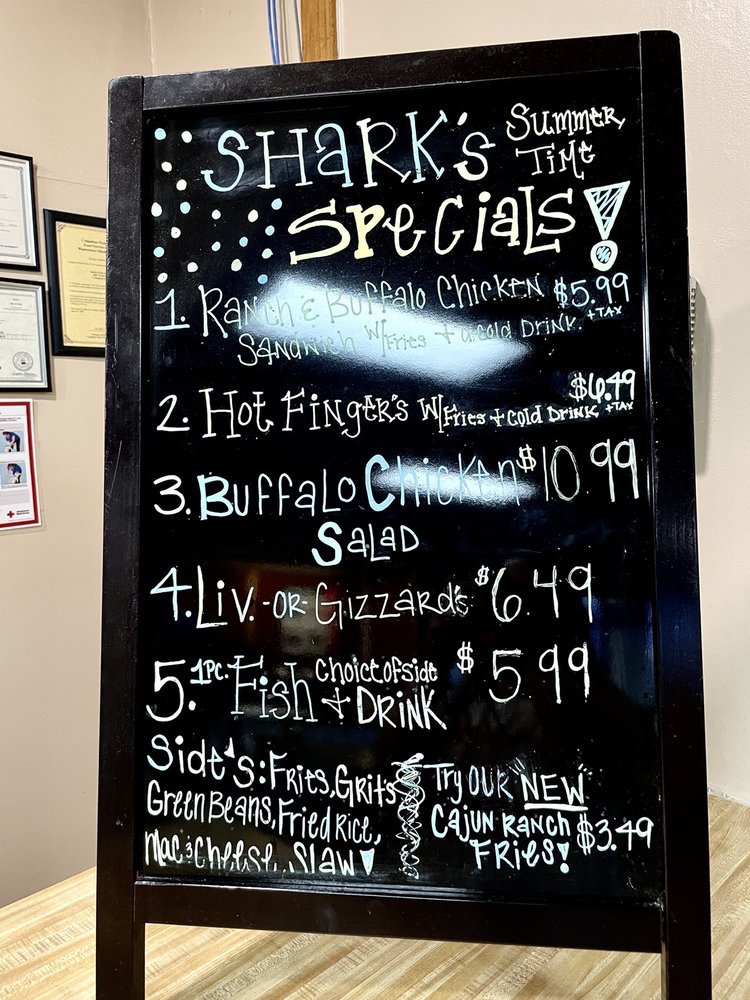 SHARK's Summer
Time
Specials!
1. Ranch & Buffalo Chicken $5.99
Sandwich w/Fries + a cold Drink. +TAX
$6.49
2. Hot Finger's w/Fries + cold Drink +TAX
3. Buffalo Chicken $10.99
Salad
4. Liv. -OR- Gizzard's $6.49
5. 1pc. Fish Choice of side $5.99
+ DRINK
Side's: Fries, Grits
Green Beans, Fried Rice,
Mac & Cheese, Slaw!
Try OUR "NEW"
Cajun Ranch $3.49
Fries!